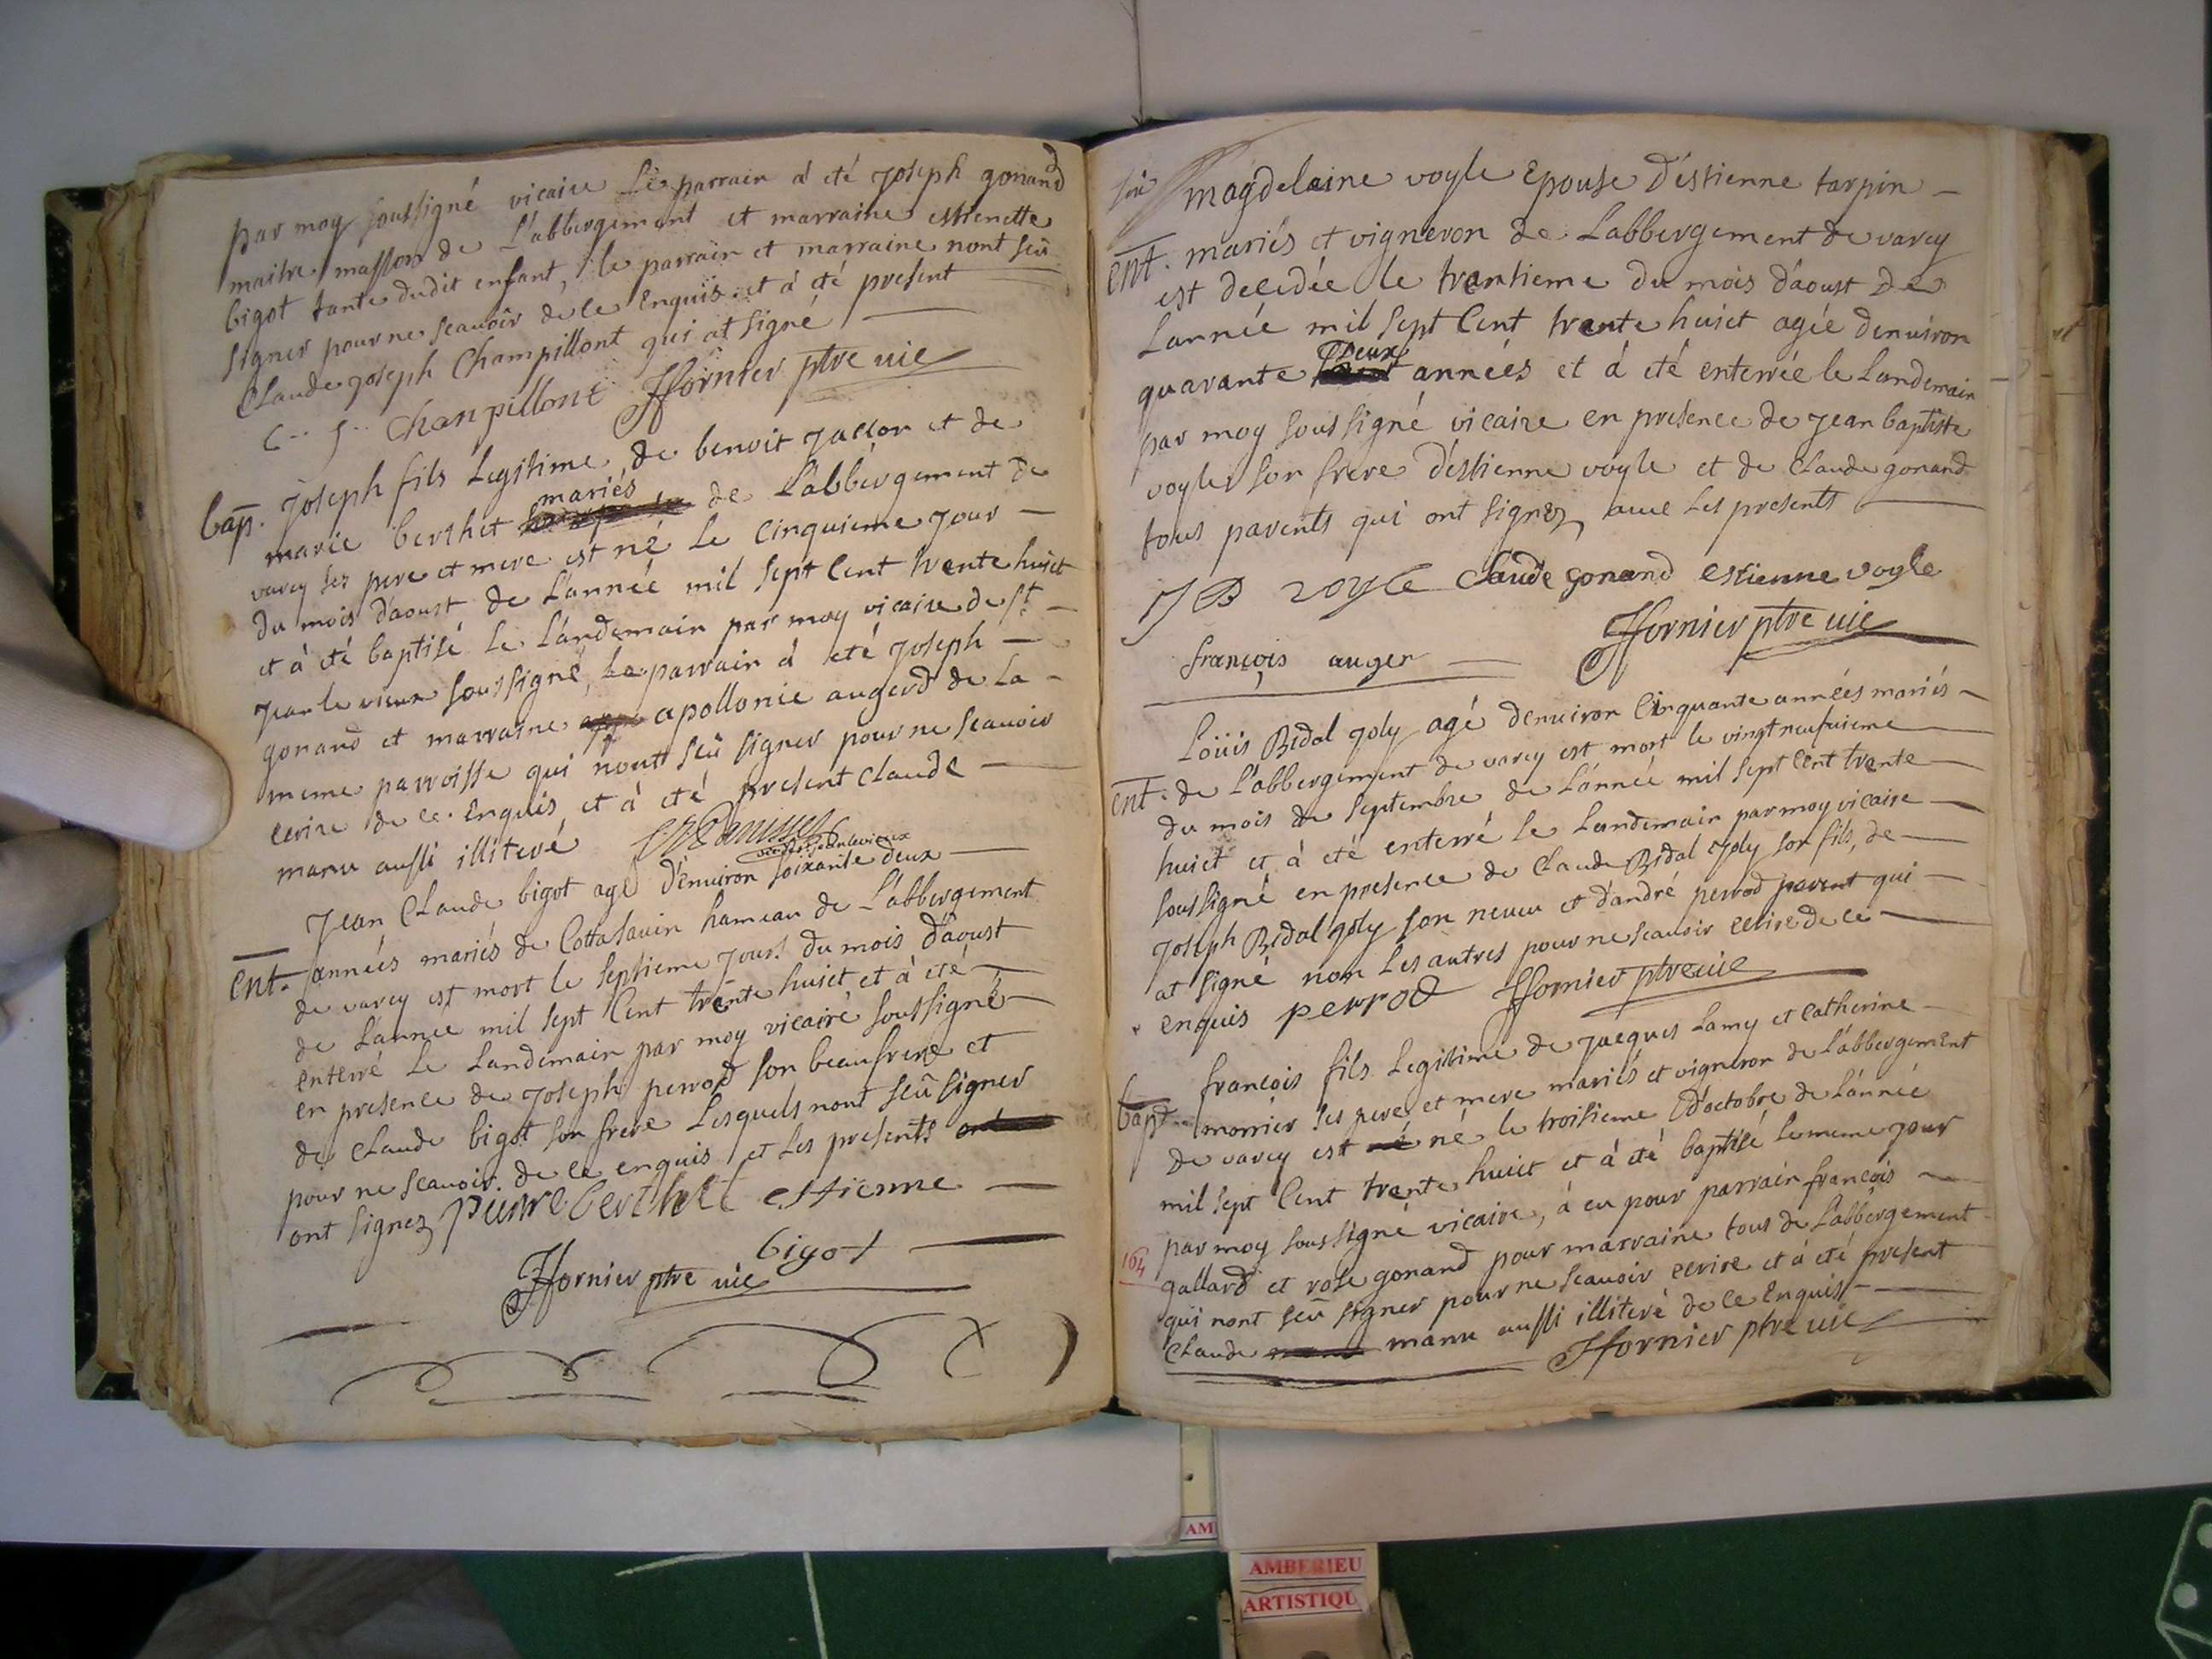 par moy soussigné vicaire Le parrain à eté joseph gonand
maitre masson de L'abbergement et marraine estienette
bigot tante dudit enfant, le parrain et marraine nont seû
signer pour ne scauoir de ce Enquis et à eté present
Claude joseph Champillont qui at signé
C.. J.. Chanpillont ffornier ptre vic
bap. joseph fils Legitime de benoit jallon et de
marie berthet mariés de L'abbergement de
varey ses pere et mere est né Le Cinquieme jour
du mois d'aoust de L'année mil sept Cent trente huict
et à eté baptisé Le L'andemain par moy vicaire de st
jean le vieux soussigné, Le parrain à eté joseph
gonand et marraine apollonie augerd de La
meme parroisse qui nont seû signer pour ne scauoir
ecrire de ce Enquis, et à eté present claude
manu aussi illiteré
vic de st jean le vieux
jean Claude bigot agé d'enuiron soixante deux
ent. années mariés de Cottasauin hameau de L'abbergement
de varey est mort le septieme jour du mois d'aoust
de L'année mil sept Cent trente huict et à eté
enterré Le Landemain par moy vicaire soussigné
en presence de joseph perrod son beaufrere et
de Claude bigot son frere Lesquels nont seû signer
pour ne scauoir de ce enquis et Les presents
ont signez pierre berthet estienne
bigot
ffornier ptre vic
magdelaine voyle Epouse d'estienne tarpin
ent. mariés et vigneron de Labbergement de varey
est decedée le trentieme du mois d'aoust de
Lannée mil sept Cent trente huict agée denuiron
quarante Deux années et à eté enterrée le Landemain
par moy soussigné vicaire en presence de jean baptiste
voyle son frere d'estienne voyle et de Claude gonand
tous parents qui ont signez auec Les presents
J B voyle Claude gonand estienne voyle
françois auger ffornier ptre vic
Loüis Bidal joly agé denuiron Cinquante années mariés
ent. de L'abbergement de varey est mort le vingt neufuieme
du mois de septembre de L'année mil sept Cent trente
huict et à eté enterré le Landemain par moy vicaire
soussigné en presence de Claude Bidal joly son fils, de
joseph Bidal joly son neueu et d'andré perrod parent qui
at signé non Les autres pour ne scauoir ecrire de ce
enquis perrod ffornier ptre vic
françois fils Legitime de jacques Lamy et Catherine
bapt. monnier ses pere et mere mariés et vigneron de L'abbergement
de varey est né le troisieme d'octobre de L'année
mil sept Cent trente huict et à eté baptisé le meme jour
par moy soussigné vicaire, à eu pour parrain françois
164
gallard et rose gonand pour marraine tous de L'abbergement
qui nont seû signer pour ne scauoir ecrire et à eté present
Claude manu aussi illiteré de ce Enquis
ffornier ptre vic
AM
AMBERIEU
ARTISTIQU